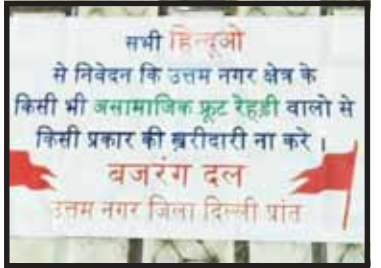 सभी हिन्दूओ
से निवेदन कि उत्तम नगर क्षेत्र के
किसी भी असामाजिक फ्रूट रेहड़ी वालो से
किसी प्रकार की ख़रीदारी ना करे ।
बजरंग दल
उत्तम नगर जिला दिल्ली प्रांत